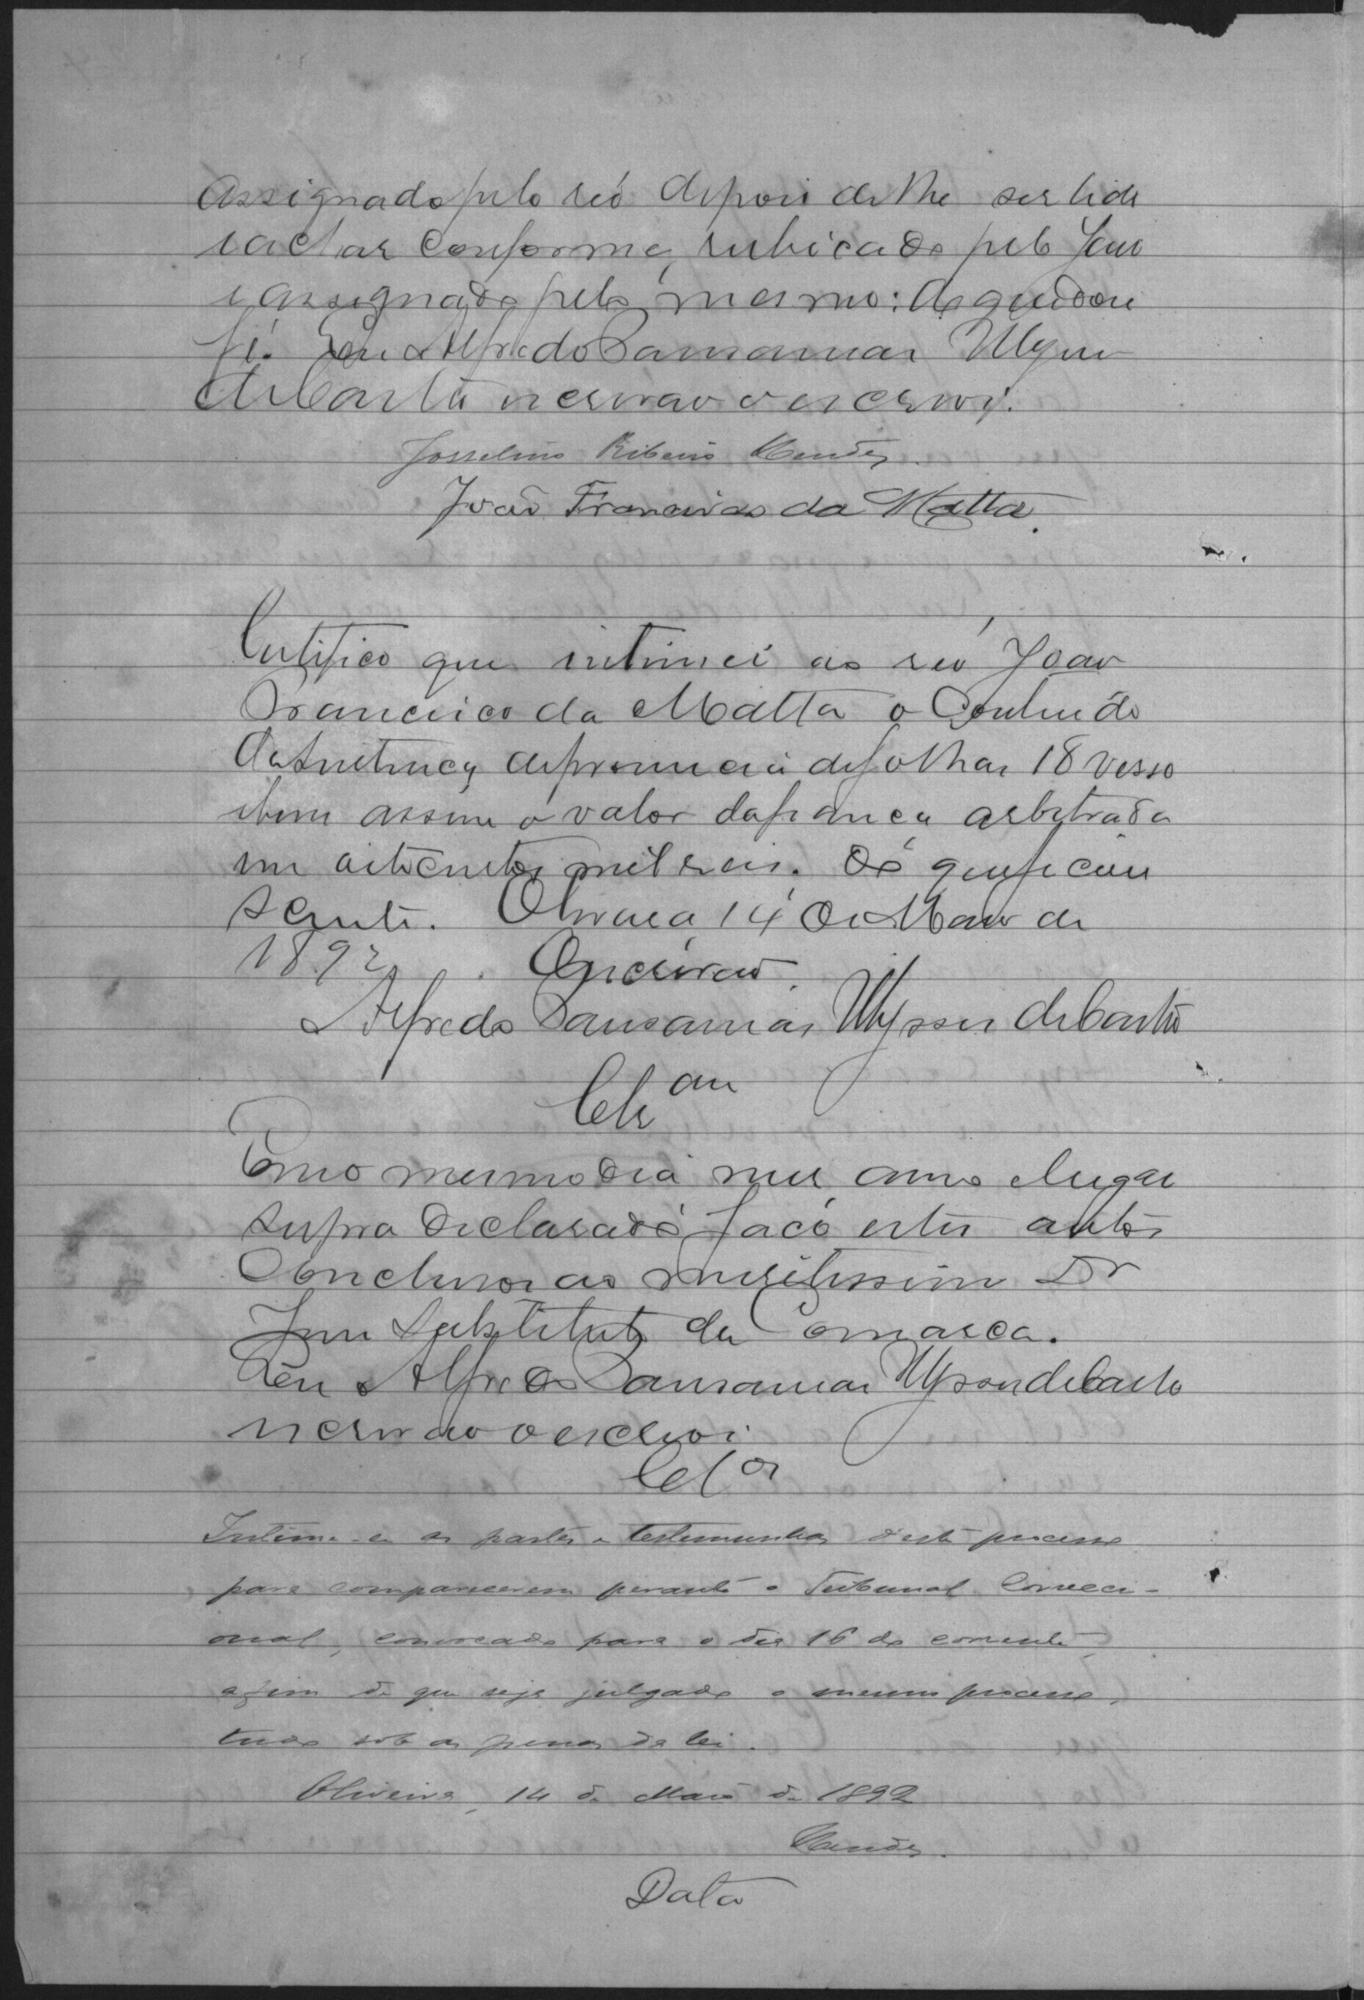 assignado pelo reó depois de lhe ser lido
e achar conforme, rubicado pelo Juis
e assignado pelo mesmo: do que dou
fé. Eu Alfredo Pausanias Ulysses
de Castro escrivao o escrevi.
Josselino Ribeiro Mendes.
João Francisco da Matta.
Certifico que intimei ao reó Joao
Francisco da Matta o Conteudo
da sentença de pronuncia de folhas 18 verso
e bem assim o valor da fiança arbitrada
em oitocentos mil reis. Do que ficou
sciente. Oliveira 14 de Maio de
1892. O escrivao.
Alfredo Pausanias Ulysses de Castro
Clsam
E no mesmo dia mes anno e lugar
supra declarado faço estes autos
Conclusos ao meritissimo Dr
Juis Substituto da Comarca.
Eu Alfredo Pausanias Ulysses de Castro
escrivao o escrevi
Clos
Intime-se as partes e testemunhas deste processo
para comparecerem perante o Tribunal Correcci-
onal, convocado para o dia 16 do corrente,
afim de que seja julgado o mesmo processo,
tudo sob as penas da lei.
Oliveira, 14 de Maio de 1892
Mendes.
Data